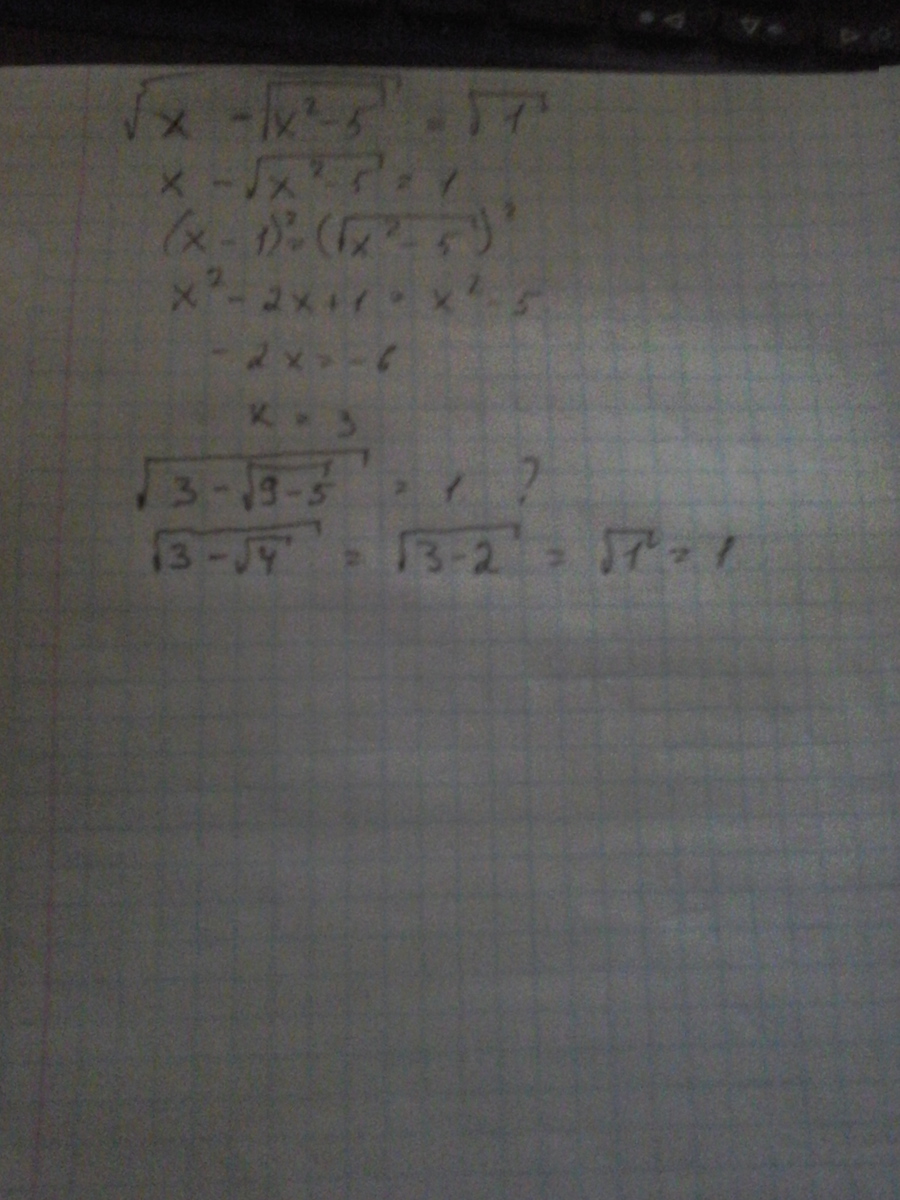 √(x - √(x² - 5)) = √1
x - √(x² - 5) = 1
(x - 1)² = (√(x² - 5))²
x² - 2x + 1 = x² - 5
- 2x = - 6
x = 3
√(3 - √(9 - 5)) = 1 ?
√(3 - √4) = √(3 - 2) = √1 = 1